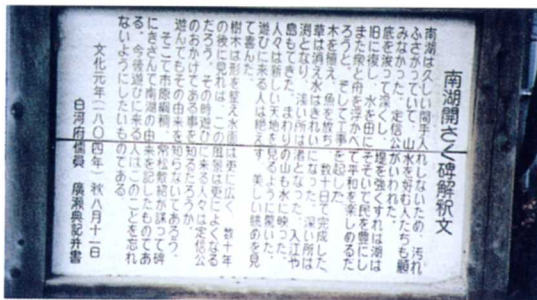 南湖開さく碑解釈文
南湖は久しい間手入れしないため、汚れ
ふさがっていて、山水を好む人たちも顧
みなかった。定信公がいわれた。
底を浚って深くし、堤を強くすれば湖は
旧に復し、水を田にそそいで民を豊にし
また衆と舟を浮かべて平和を楽しめるだ
ろうと、そして工事を起した。
木を植え、魚を放ち、数十日で完成した。
草は消え水はきれいになった。深い所は
渕となり、浅い所は渚となった。入江や
島もできた。まわりの山も水に映った。
人々は新しい天地を見るように驚いた。
遊びに来る人は絶えず、美しい眺めを見
て喜んだ。
樹木は形を整え水面は更に広く、数十年
の後に見れば、この風景は更によくなる
だろう。その時遊びに来る人々は定信公
のおかげである事を知るだろうか。
遊んでもその由来を知らないであろう。
そこで市原綱稠、常松敷紹が謀って碑
にきざんで南湖の由来を記したものであ
る。今後遊びに来る人はこのことを忘れ
ないようにしたいものである。
文化元年(一八〇四年)秋八月十一日
白河府儒員　廣瀬典記幷書